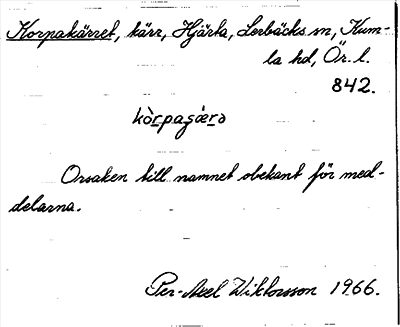 Korpakärret, kärr, Hjärta, Lerbäcks sn, Kum-
la hd, Ör. l.
842.
kòrpaʂæ̀rə
Orsaken till namnet obekant för med-
delarna.
Per-Axel Wiktorsson 1966.